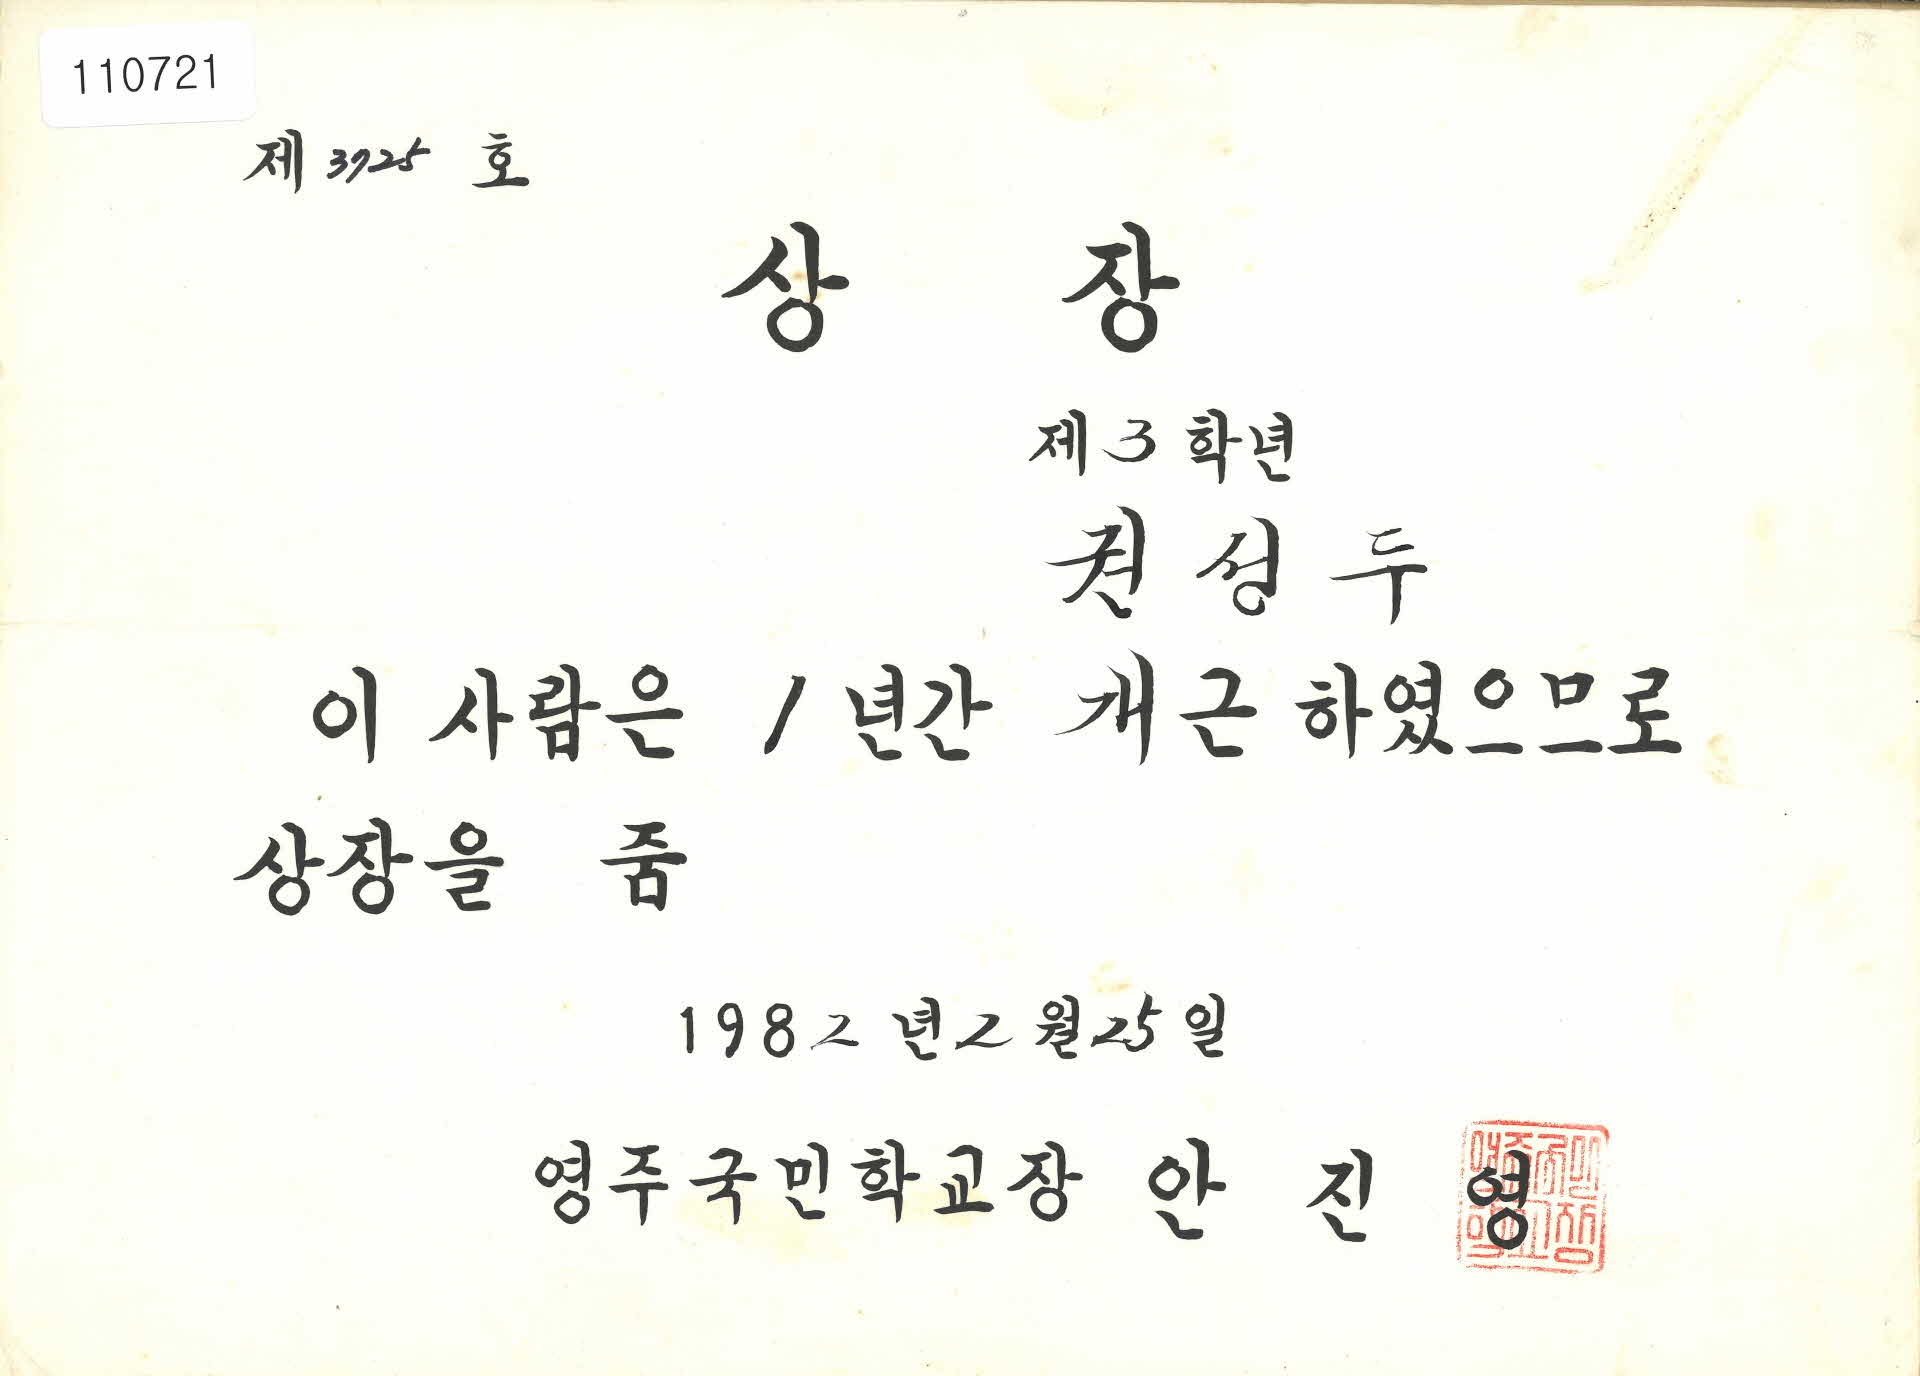 110721
제 3725 호
상 장
제 3 학년
권 성 두
이 사람은 1 년간 개근 하였으므로
상장을 줌
1982 년 2 월 25 일
영주국민학교장 안 진 영